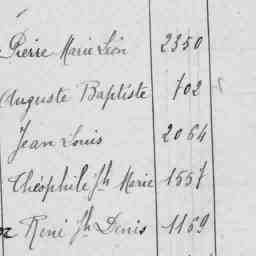 Pierre Marie Léon 2350
Auguste Baptiste 702
Jean Louis 2064
Théophile Jh Marie 1557
René Jh Denis 1159